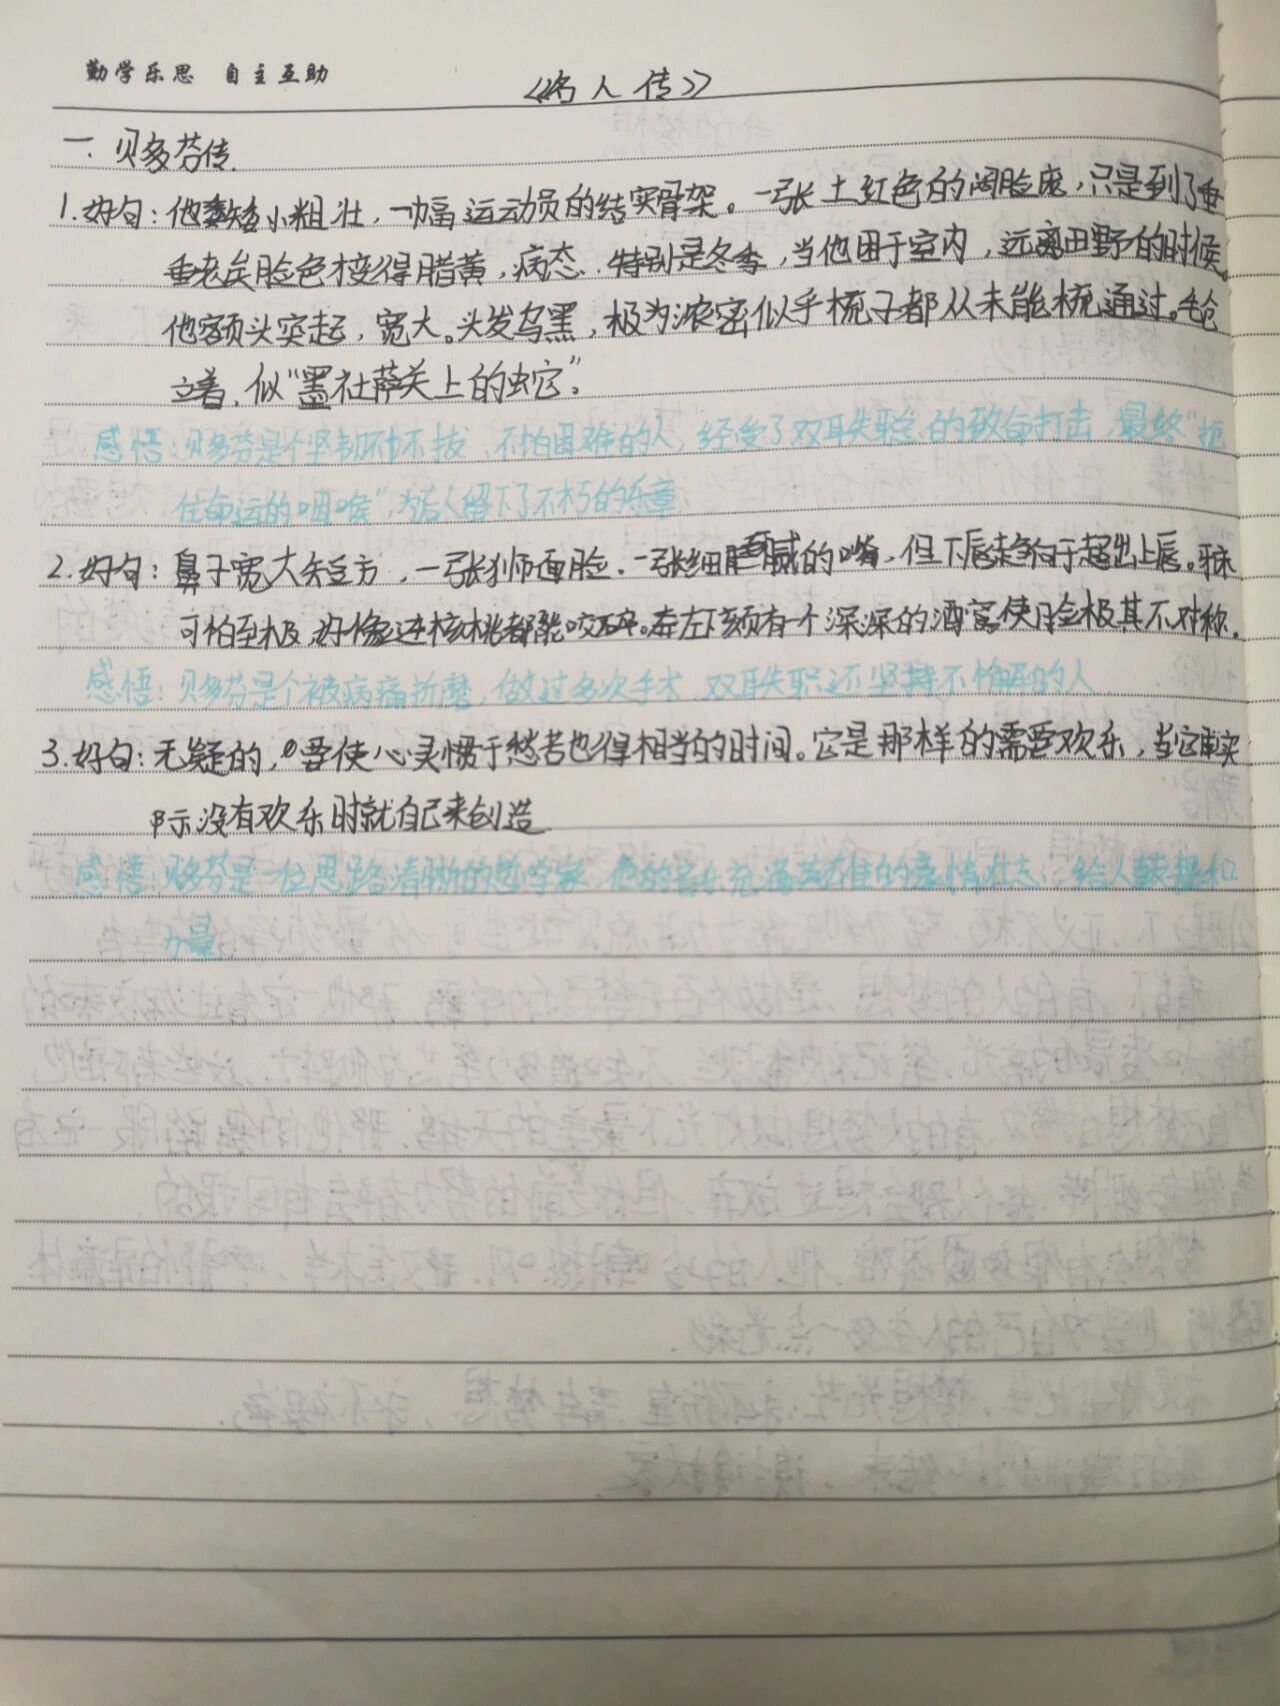 勤学乐思 自主互助
《名人传》
一、贝多芬传.
1.好句:他矮小粗壮,一幅运动员的结实骨架。一张土红色的阔脸庞,只是到了垂
垂老矣脸色才变得腊黄,病态.特别是冬季,当他困于室内,远离田野的时候。
他额头突起,宽大。头发乌黑,极为浓密似乎梳子都从未能梳通过。毛仓
立着.似“墨社萨关上的蛇”。
感悟:贝多芬是个坚韧不拔、不怕困难的人,经受了双耳失聪的致命打击,最终“扼
住命运的咽喉”,为后人留下了不朽的乐章
2.好句:鼻子宽大短方,一张狮面脸.一张细腻的嘴,但下唇趋向于超出上唇。牙床
可怕至极好像连核桃都能咬碎。在左下颏有一个深深的酒窝使脸极其不对称。
感悟:贝多芬是个被病痛折磨,做过多次手术.双耳失职还坚持不懈的人
3.好句:无疑的,要使心灵惯于愁苦也得相当的时间。它是那样的需要欢乐,当它
实
际没有欢乐时就自己来创造
感悟:贝多芬是一位思路清晰的哲学家 他的音乐充满英雄的豪情壮志,给人鼓舞和
力量.